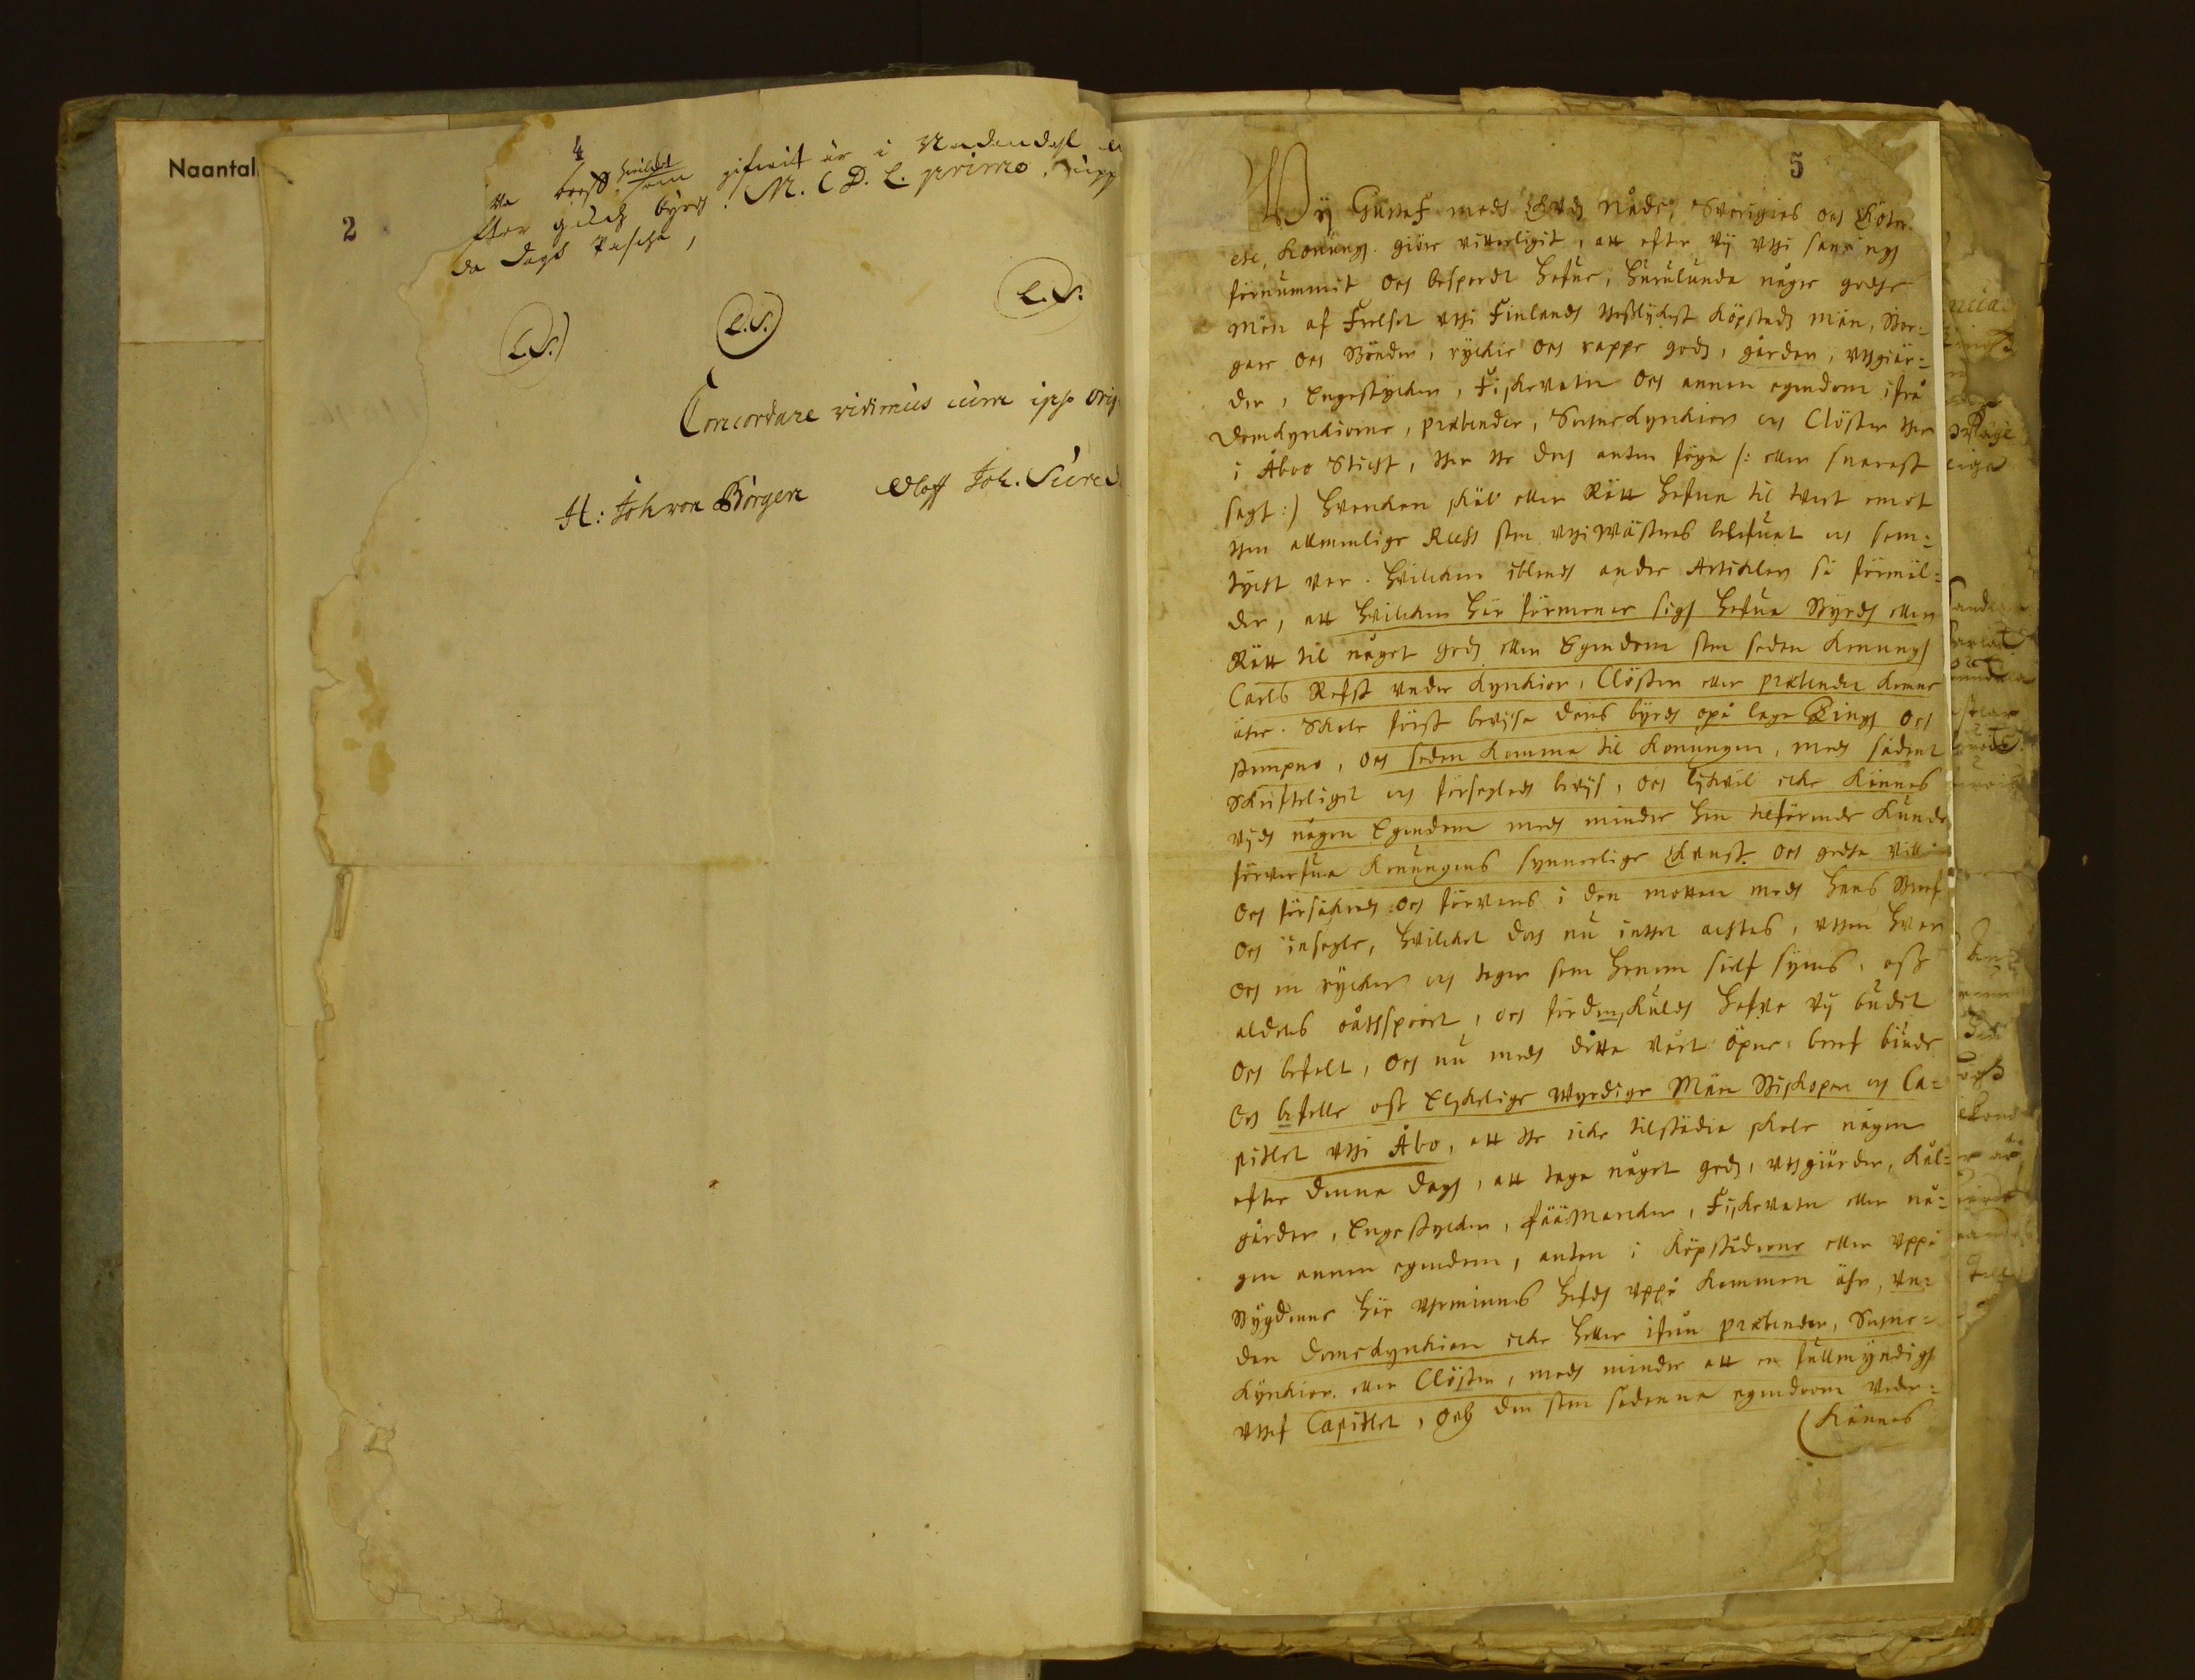 Naantal
2
4
hvilcket
va breff som gifvit är i Nadendahl
fter gudz byrd. M. CD. L. primo.
da dags Pascha,
L.S.
L.S.
L.S.
Concordare vidimus cum ips. Orig
H: Joh von Börgen Oloff Joh.
5
Wij Gustaf medh Gudz nåde, Sverigies och Göte.
etc, Konungh. giöre vitterligit, att efter vij vthi sanningh
förnummit och bespordt hafue, huruledes någre godhe
Män af Frelset vthi Finlandh theslijkest Köpstadz män, Bor-
gare och Bönder, ryckie och rappe godz, gårdar, vthgiär-
der, Engestycker, Fiskevatn och annen egendom ifrå
Domkyrkiorne, præbender, Sognekyrkiorn och Clöster ther
i Åboo Sticht, ther the doch anten föga /: eller snarast
sagt :/ hvarken skäl eller Rätt hafua til tvert emot
then allmenlige Recess som vthi Wästerås belefuat och sam-
tyckt var. hvilcken iblandh andre Articklar så förmäl-
der, att hvilcken här förmener sigh hafua Byrdh eller
Rätt til något godz eller Egendom som sedan Konungh
Carls Refst vnder kyrkior, Clöster eller præbender komne
äre. Skole först bevijse deres byrdh opå laga Tingh och
stempno, och sedan komma til Konungen, medh sådant
Skrifteligit och förseglade bevijs, och lijkväl icke kännes
vijdh någon Egendom medh mindre han tilförende kunde
förverfua Konungens synnerlige Gunst och godhe vilie
och försäkras och förvares i den motten medh hans Breff
och insegle, hvilcket doch nu inthet achtes, vthan hver
och en rycker och tager som honom sielf synes, oss
aldeles oåthspoort, och fördenskuldh hafve vij budit
och befalt, och nu medh dette vårt öpne breef biude
och befalle oss Elskelige Wyrdige Män Biskopen och Ca-
pitlet vthi Åbo, att the icke tilstädie skole någon
efter denne dagh, att taga något godz, vthgiärder, Kål-
gårder, Engestycker, fäämarcker, Fiskevatn eller nå-
gon annen egendom, anten i Köpstäderne eller vppå
Bygdenne här vhrminnes hefdh vppå kommen ähr, vn-
dan Domckyrkian icke heller ifrån præbender, Sogne-
kyrkior. eller Clöster, medh mindre att en fullmyndigh
vthaf Capitlet, och den som sådanne egendoom veder-
kännes